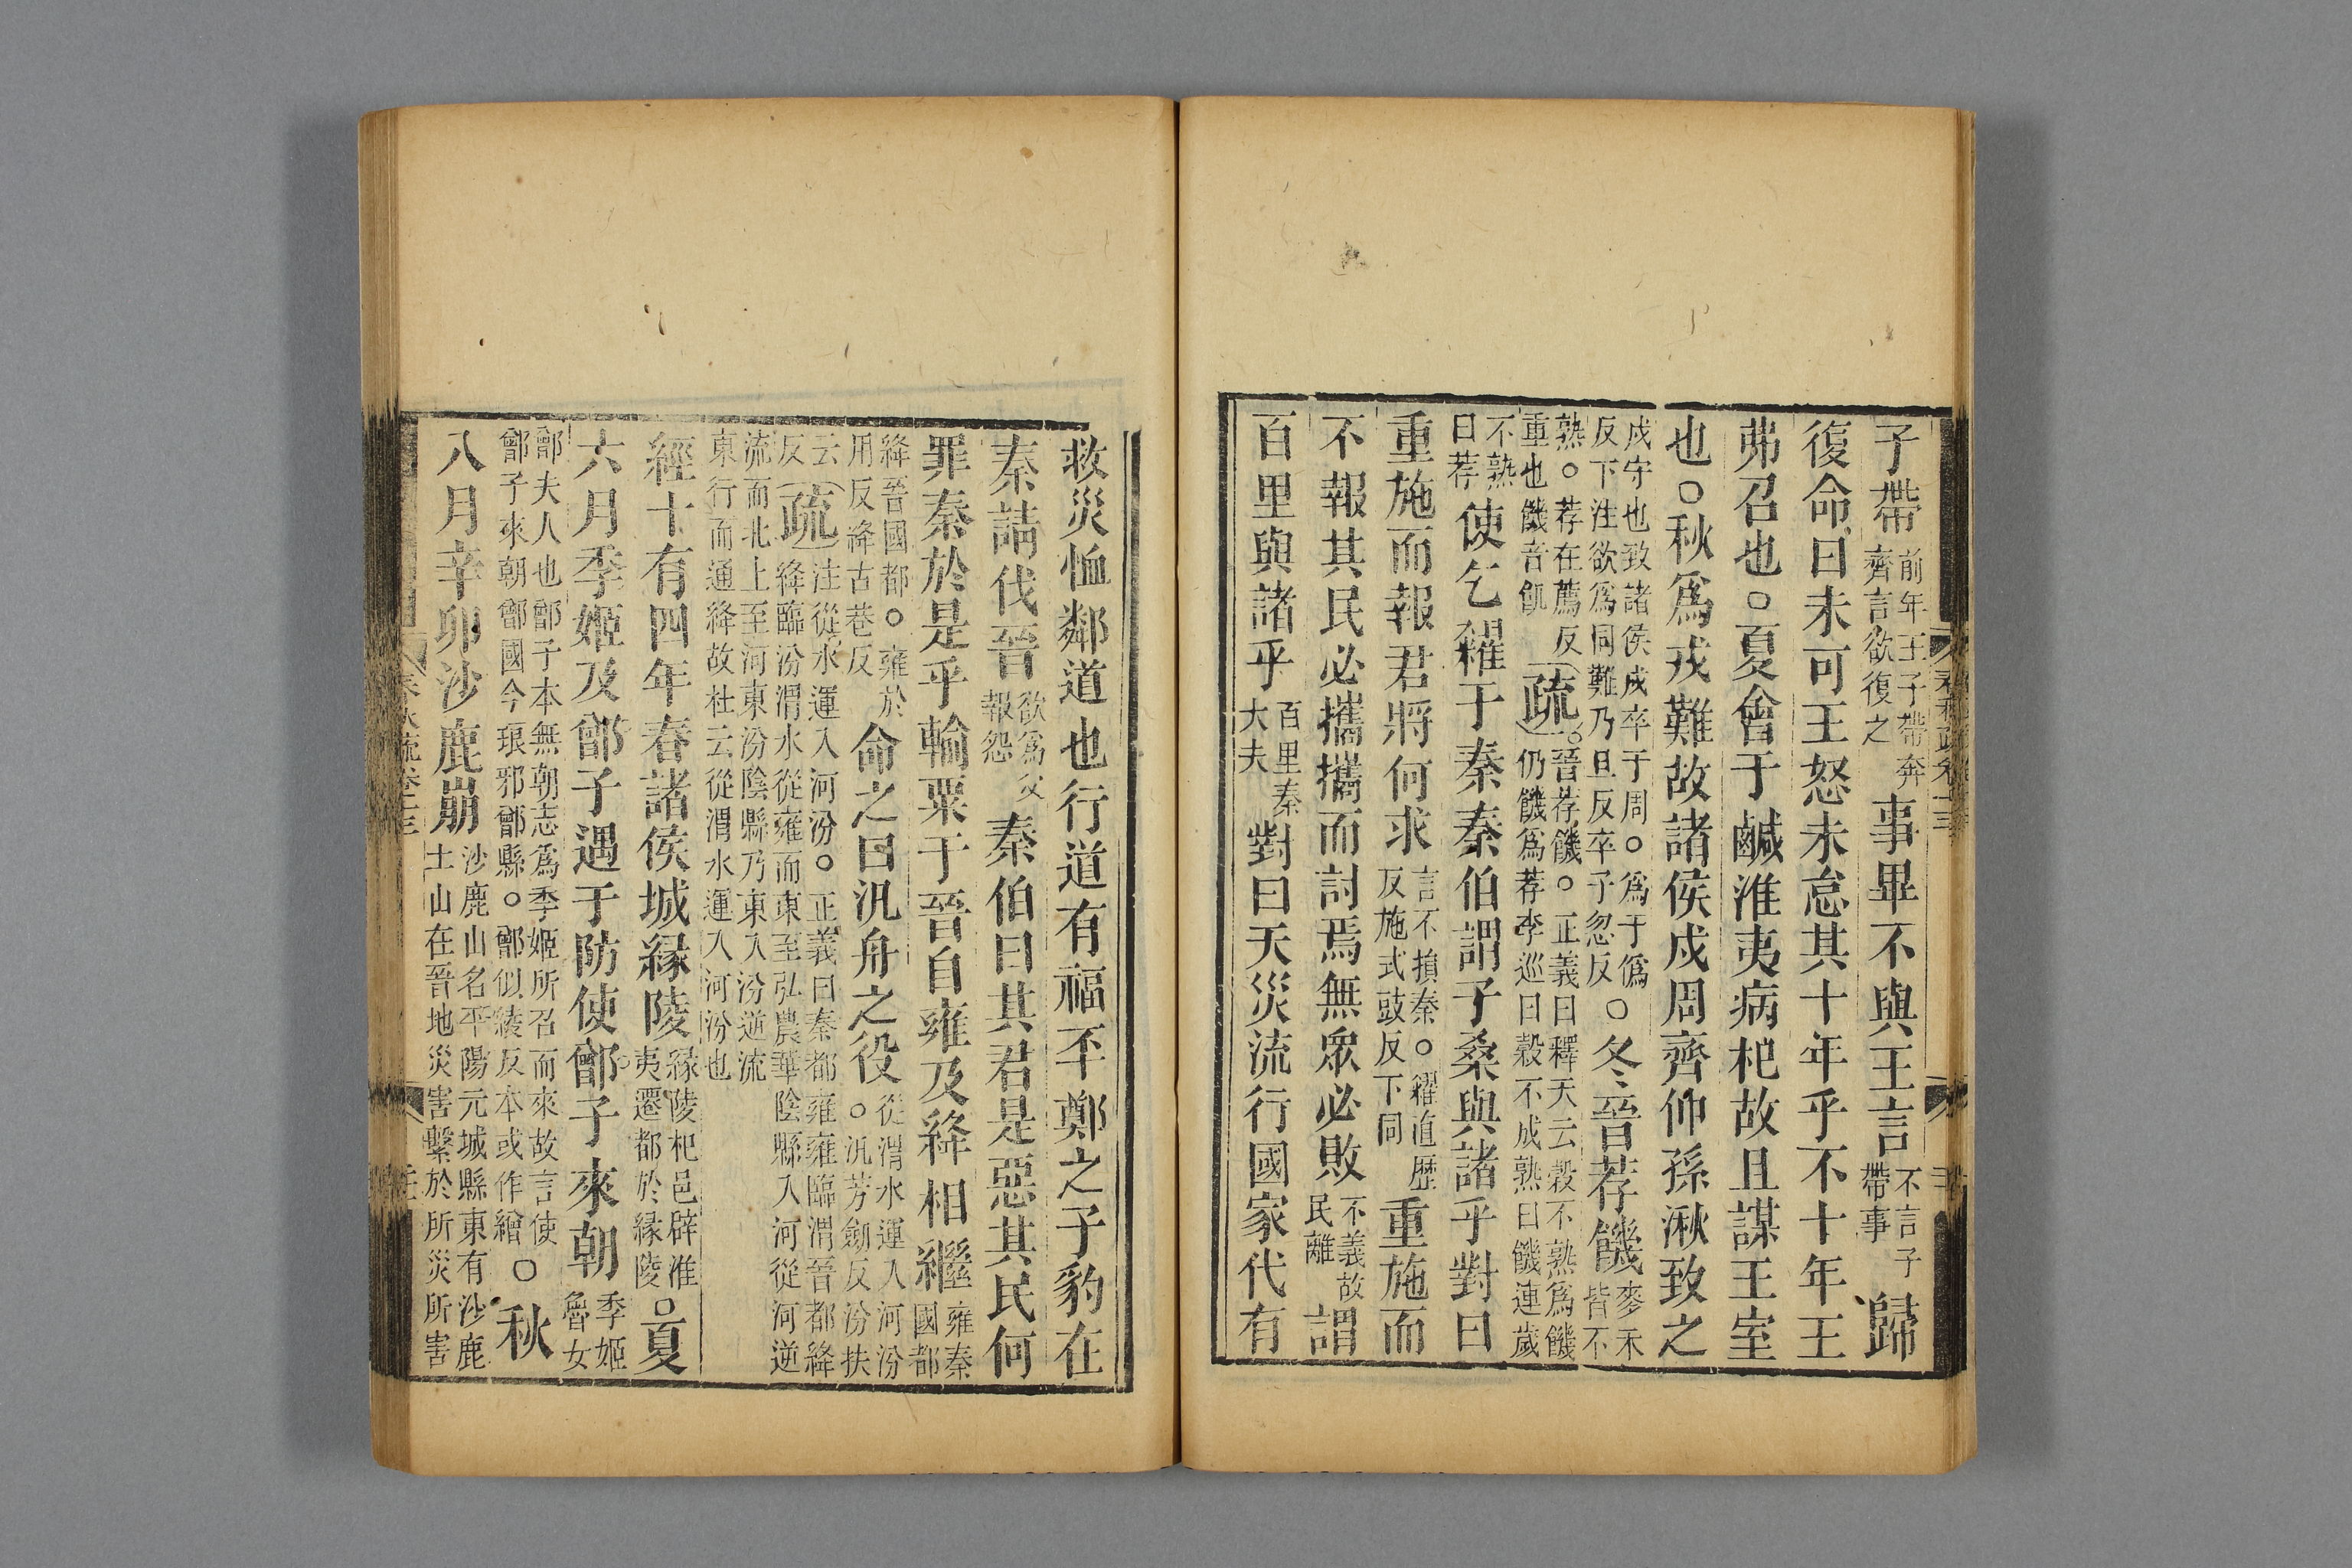 子帶前年王子帶奔齊言欲復之事畢不與王言不言子帶事歸
復命曰未可王怒未怠其十年乎不十年王
弗召也○夏會于鹹淮夷病杞故且謀王室
也○秋爲戎難故諸侯戍周齊仲孫湫致之
戍守也致諸侯戍卒于周○爲于僞
反下注欲爲同難乃旦反卒子忽反○冬晉荐饑麥禾皆不
熟○荐在薦反
重也饑音飢疏晉荐饑○正義曰釋天云穀不熟爲饑
仍饑爲荐李巡曰穀不成熟曰饑連歲
不熟曰荐使乞糴于秦秦伯謂子桑與諸乎對曰
重施而報君將何求言不損秦○糴直歷反施式豉反下同重施而
不報其民必攜攜而討焉無衆必敗不義故民離謂
百里與諸乎百里秦大夫對曰天災流行國家代有
救災恤鄰道也行道有福丕鄭之子豹在
秦請伐晉欲爲父報怨秦伯曰其君是惡其民何
罪秦於是乎輸粟于晉自雍及絳相繼雍秦國都
絳晉國都○雍於
用反絳古巷反命之曰汎舟之役從渭水運入河汾
○汎芳劒反汾扶
云反疏注從水運入河汾○正義曰秦都雍雍臨渭晉都絳
絳臨汾渭水從雍而東至弘農華陰縣入河從河逆
流而北上至河東汾陰縣乃東入汾逆流
東行而通絳故杜云從渭水運入河汾也
經十有四年春諸侯城緣陵緣陵杞邑辟淮夷遷都於緣陵○夏
六月季姬及鄫子遇于防使鄫子來朝季姬魯女
鄫夫人也鄫子本無朝志爲季姬所召而來故言使
鄫子來朝鄫國今琅邪鄫縣○鄫似綾反本或作繒○秋
八月辛卯沙鹿崩沙鹿山名平陽元城縣東有沙鹿
土山在晉地災害繫於所災所害